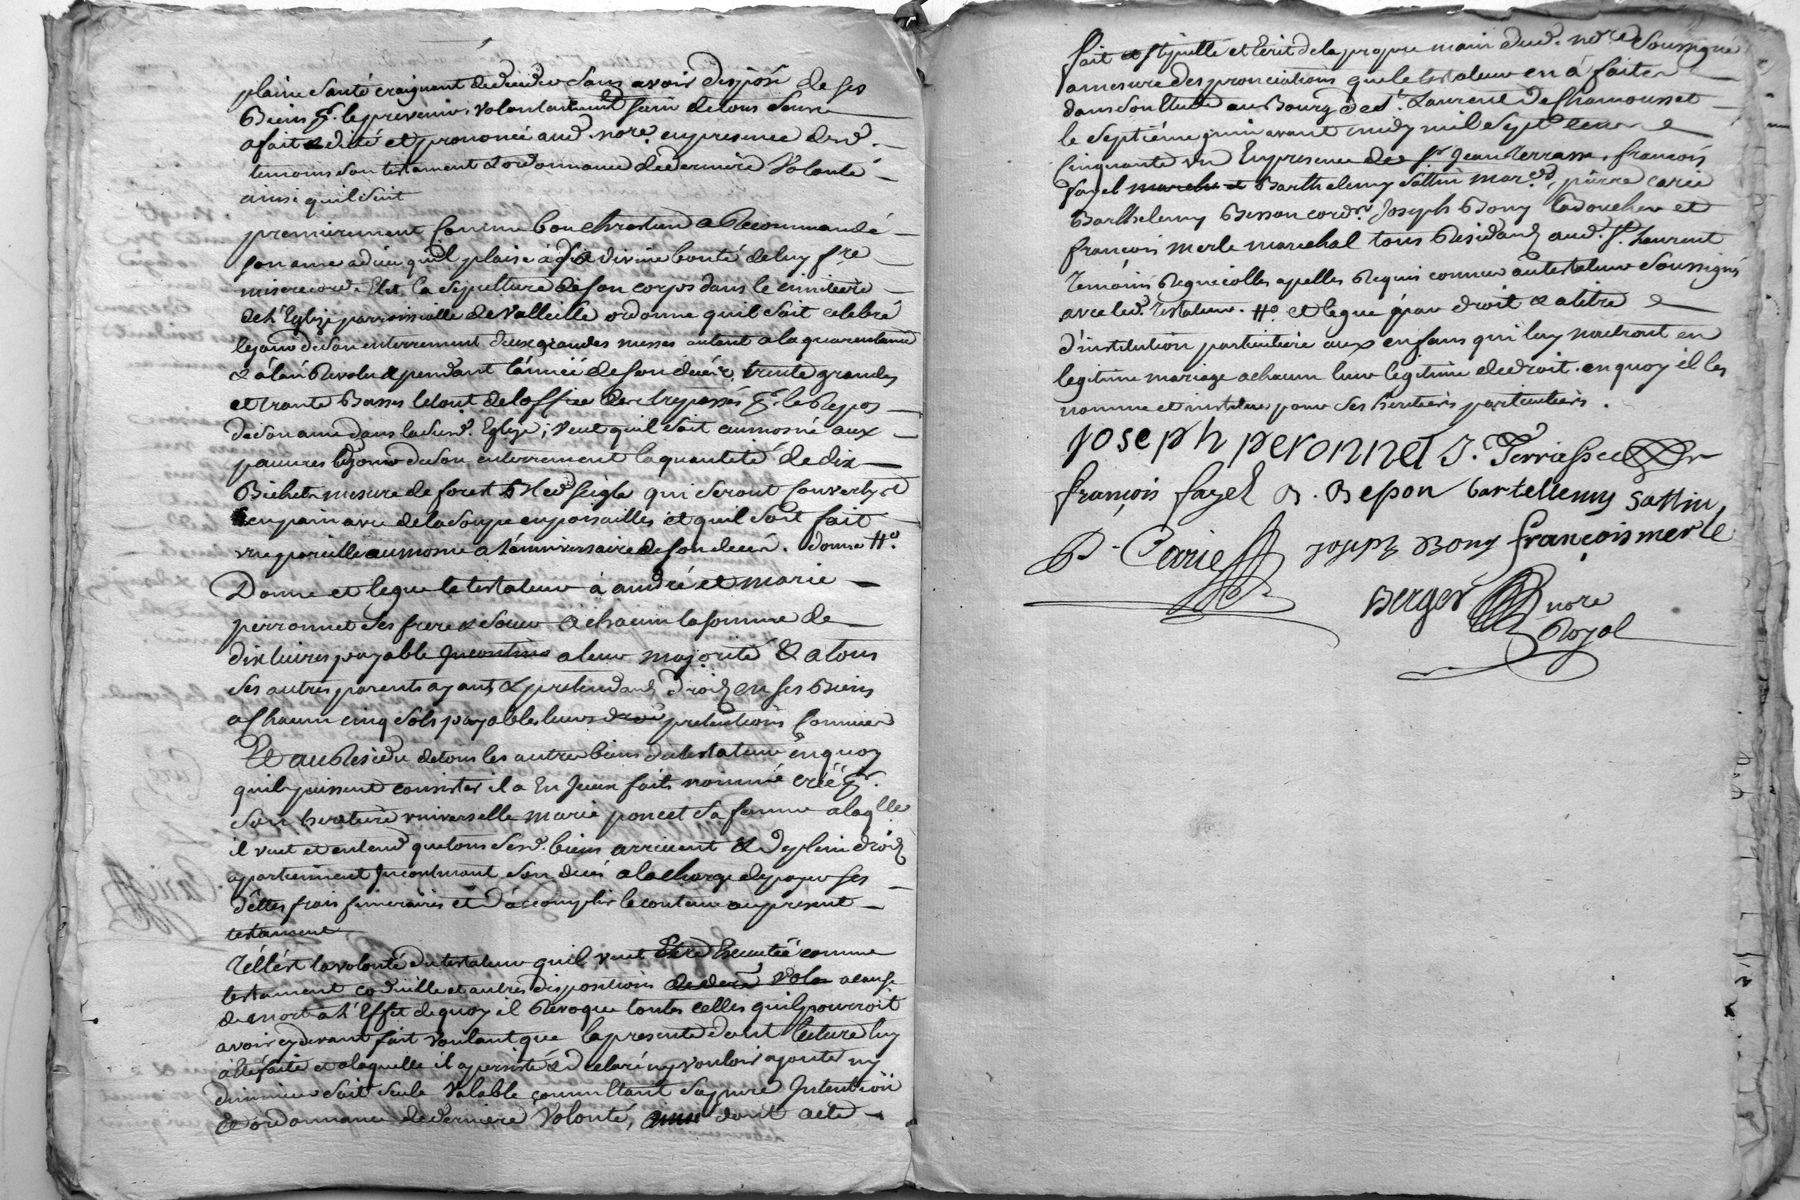 plaine santé craignant de deceder sans avoir disposé de ses
Biens pr. le prevenir, volontairemt sain de tous sens
a fait & dicté et prononcé aud. nore. en presence desd.
temoins son testament & ordonnance de derniere volonté
ainsi quil suit
premierement comme bon chrestien a Recommandé
son ame a dieu quil plaise à sa divine bonté de luy fre
misericorde. Elit la sepulture de son corps dans le cimitiere
de l'Eglize parroissialle de Valleille ordonne quil soit celebré
le jour de son enterrement deux grandes messes autant a la quarentaine
& a l'an Revolu & pendant l'année de son decés, trente grandes
et trante Basses le tout de l'office des trepassés pr. le Repos
de son ame dans lasusd. Eglize; veut quil soit aumosné aux
pauvres le jour de son enterrement la quantité de dix
Bichets mesure de forest bled seigle qui seront convertys
en pain avec de la soupe et quil soit fait
une pareille aumosne a l'anniversaire de son decés. donne Ho.
Donne et legue le testateur à andré et marie
perronnet ses frere & soeur a chacun la somme de
dix livres payable Incontins a leur majorité & a tous
ses autres parents ayant & pretendant droit en ses Biens
a chacun cinq sols payables leurs droi pretentions
Et au Residu de tous les autres biens du testateur en quoy
quils puissent consister il a En Iceux fait nommé créé pr.
son heritiere universelle marie poncet sa femme a laqlle
il veut et entend que tous sesd. biens arrivent & de plein droit
appartiennent Incontinant son décés a la charge de payer ses
dettes frais funeraires et d'accomplir le contenu au present
testament
Telle est la volonté du testateur quil veut Etre Executée comme
testament codicille et autres dispositions de dern volo acause
de mort a l'Effet de quoy il Revoque toutes celles quil pourroit
avoir cy devant fait voulant que la presente dont lecture luy
a été faite et a laquelle il a persisté & declaré ny vouloir ajouter ny
diminuer soit seule valable comme Etant sa pure Intention
& ordonnance de derniere volonté, dont acte
fait & stipullé et Ecrit de la propre main dud. nore. Soussigné
a mesure des prononciations que le testateur en a faite
dans son Etude au Bourg de St. Laurent de Chamousset
le septiéme juin avant midy mil sept cent
cinquante un En presence de sr. Jean Terrasse, françois
fayel march et Barthelemy Sattin marchd, pierre carie
Barthelemy Besson cordr Joseph Bony et
françois merle marechal tous Residants aud. St. Laurent
Temoins Requis connu au testateur soussignés
avec led. testateur. Ho. et legue par droit & a titre
d'institution particuliere aux enfans qui luy naitront en
legitime mariage a chacun leur legitime de droit. en quoy il les
nomme et institue pour ses heritiers particuliers.
joseph peronnet J. Terrasse
françois fayel B. Besson bartellemy sattin
P. Carie joseph Bony françois merle
Berger nore
Royal